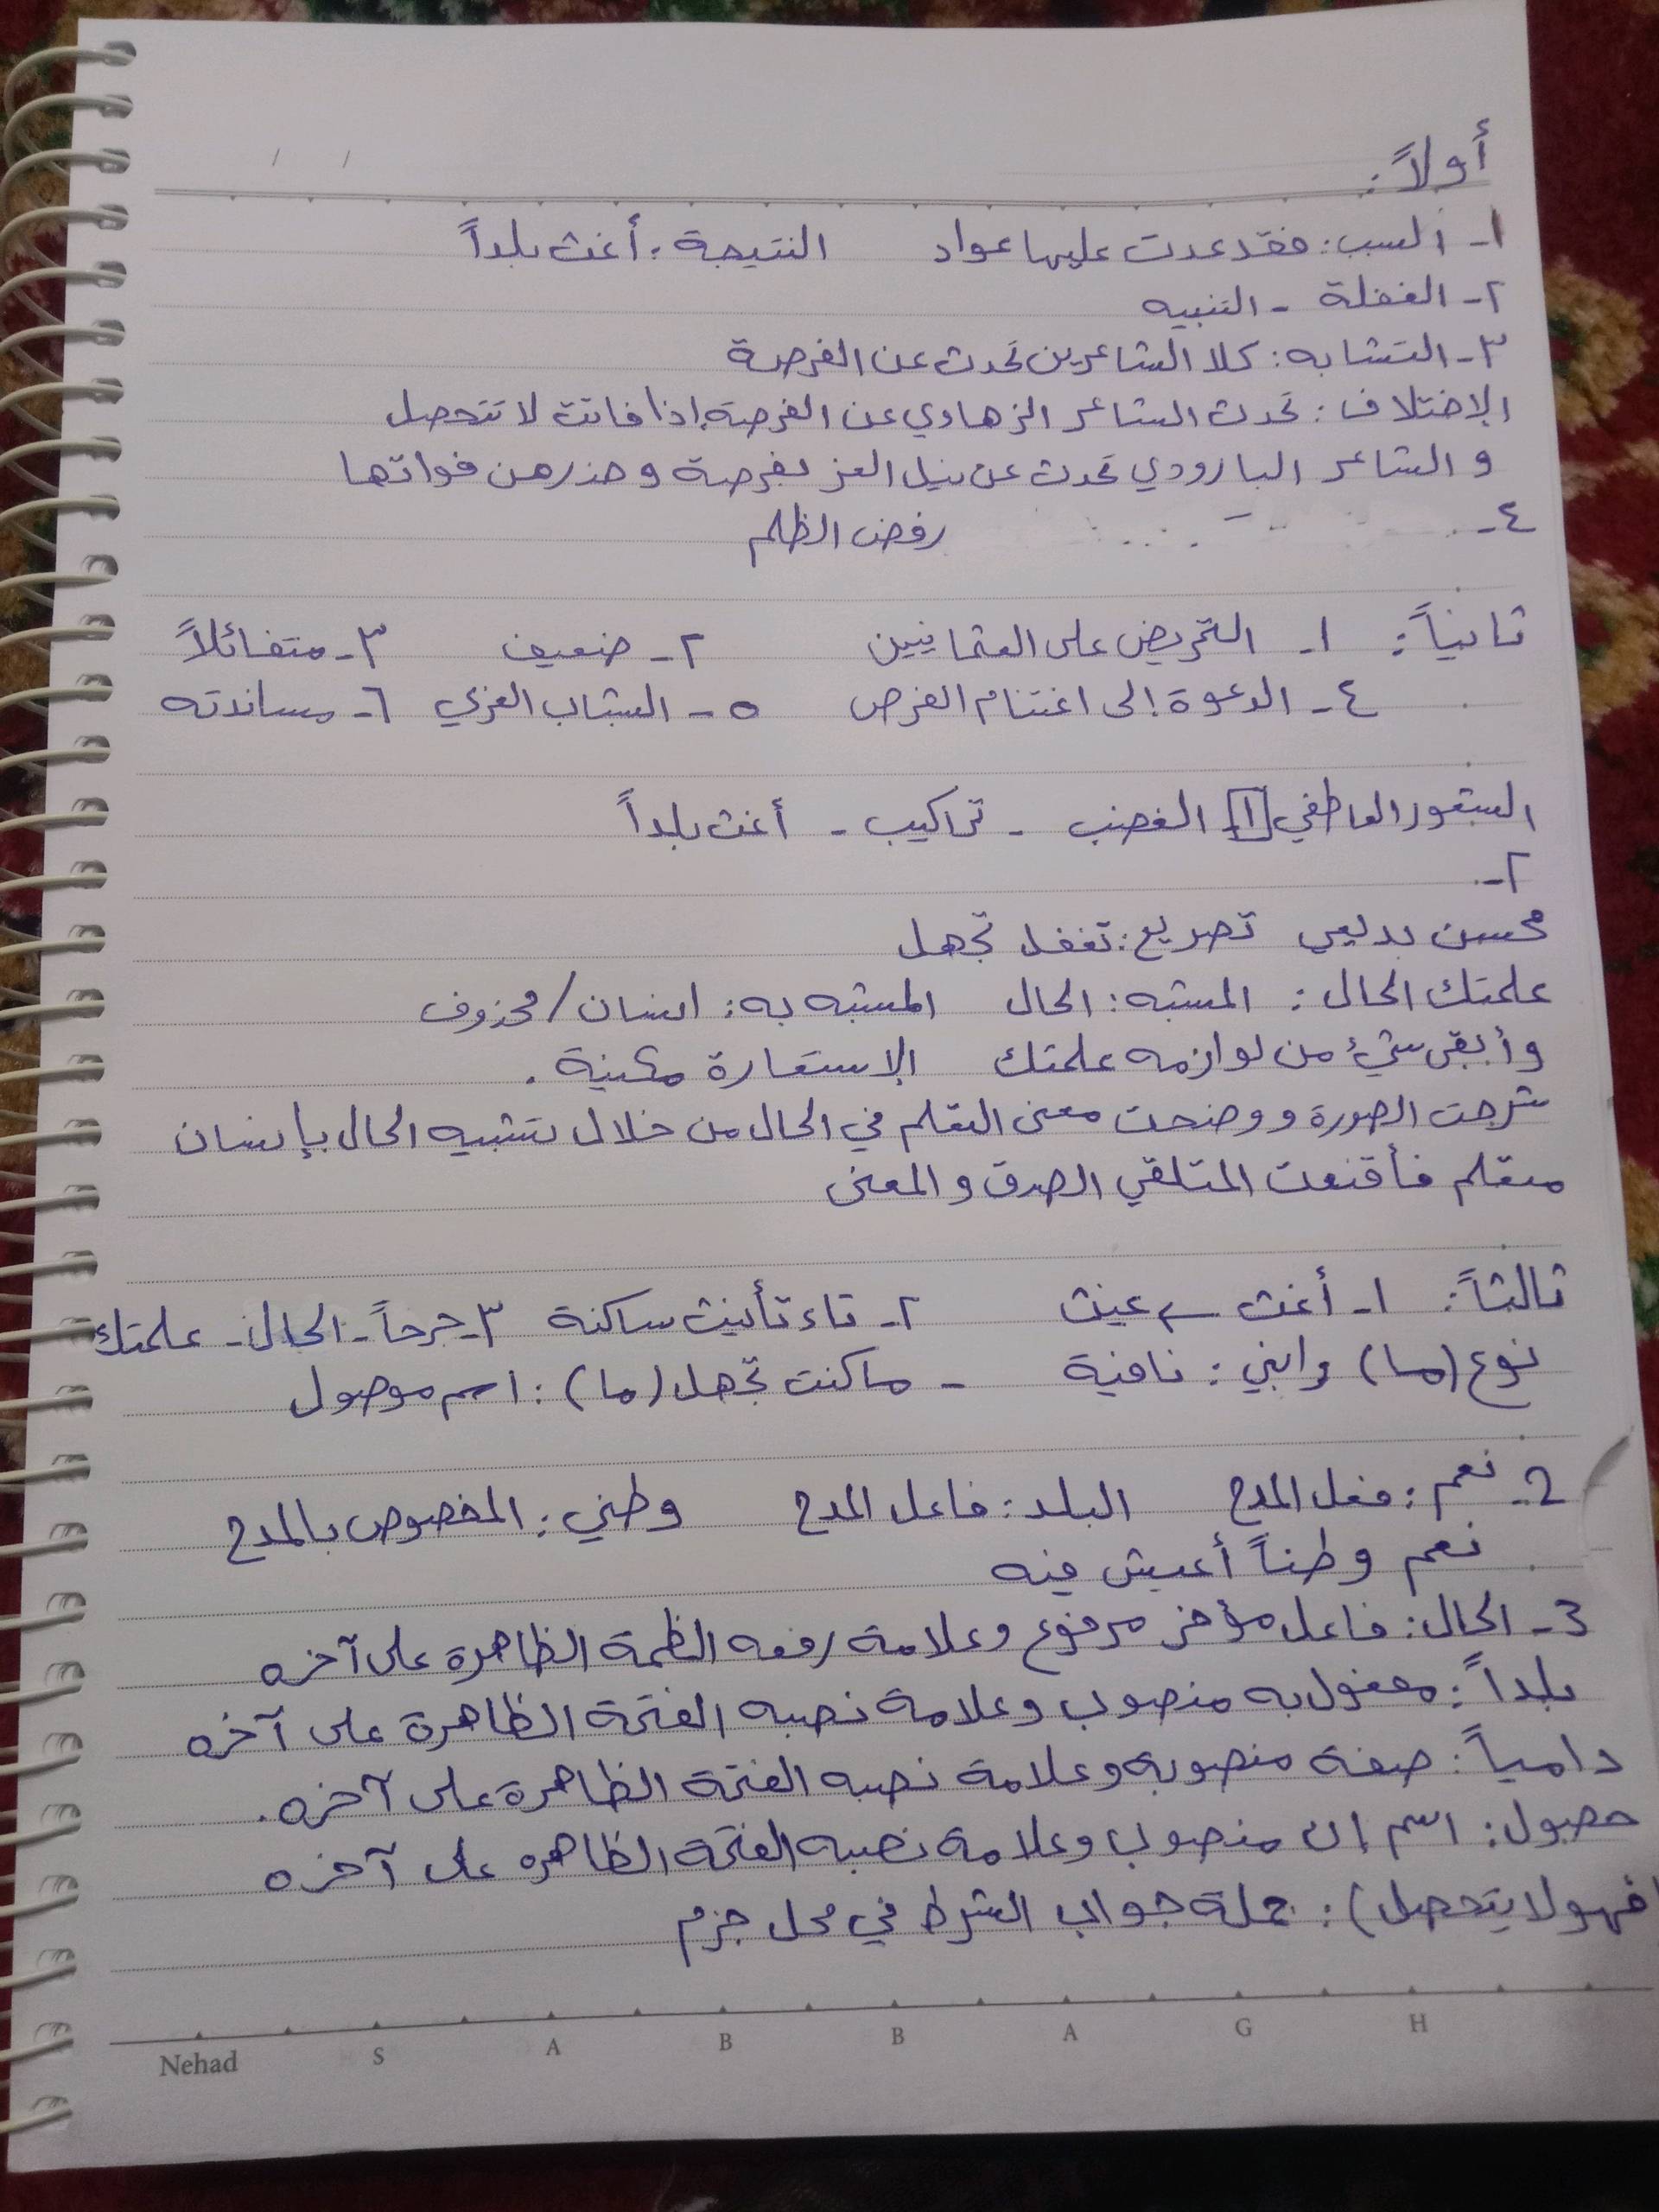 أولاً:
١- السبب: فقد عدت عليها عواد النتيجة: أغث بلداً
٢- الغفلة - التنبيه
٣- التشابه: كلا الشاعرين تحدث عن الفرصة
الإختلاف: تحدث الشاعر الزهاوي عن الفرصة إذا فاتت لا تتحصل
و الشاعر البارودي تحدث عن نيل العز بفرصة وحذر من فواتها
٤- رفض الظلم
ثانياً: ١- التحريض على العثمانيين ٢- ضعيف ٣- متفائلاً
٤- الدعوة إلى اغتنام الفرص ٥- الشباب العربي ٦- مساندته
الشعور العاطفي ١ الغضب - تراكيب - أغث بلداً
٢-
محسن بديعي تصريع: تغفل تجهل
علمتك الحال: المشبه: الحال المشبه به: انسان/محذوف
وأبقى شيء من لوازمه علمتك الإستعارة مكنية.
شرحت الصورة و وضحت معنى التعلم في الحال من خلال تشبيه الحال بإنسان
متعلم فأقنعت المتلقي الصدق والمعنى
ثالثاً: ١- أغث ← غيث ٢- تاء تأنيث ساكنة ٣- جرحاً - الحال - علمتك
نوع (ما) وابني: نافية - ما كنت تجهل (ما): اسم موصول
2- نعم: فعل المدح البلد: فاعل المدح وطني: المخصوص بالمدح
نعم وطناً أعيش فيه
3- الحال: فاعل مؤخر مرفوع وعلامة رفعه الظمة الظاهرة على آخره
بلداً: مفعول به منصوب وعلامة نصبه الفتحة الظاهرة على آخره
دامياً: صفة منصوبة وعلامة نصبه الفتحة الظاهرة على آخره.
حصول: اسم إن منصوب وعلامة نصبه الفتحة الظاهره على آخره
(فهو لا يتحصل): جملة جواب الشرط في محل جزم
Nehad S A B B A G H